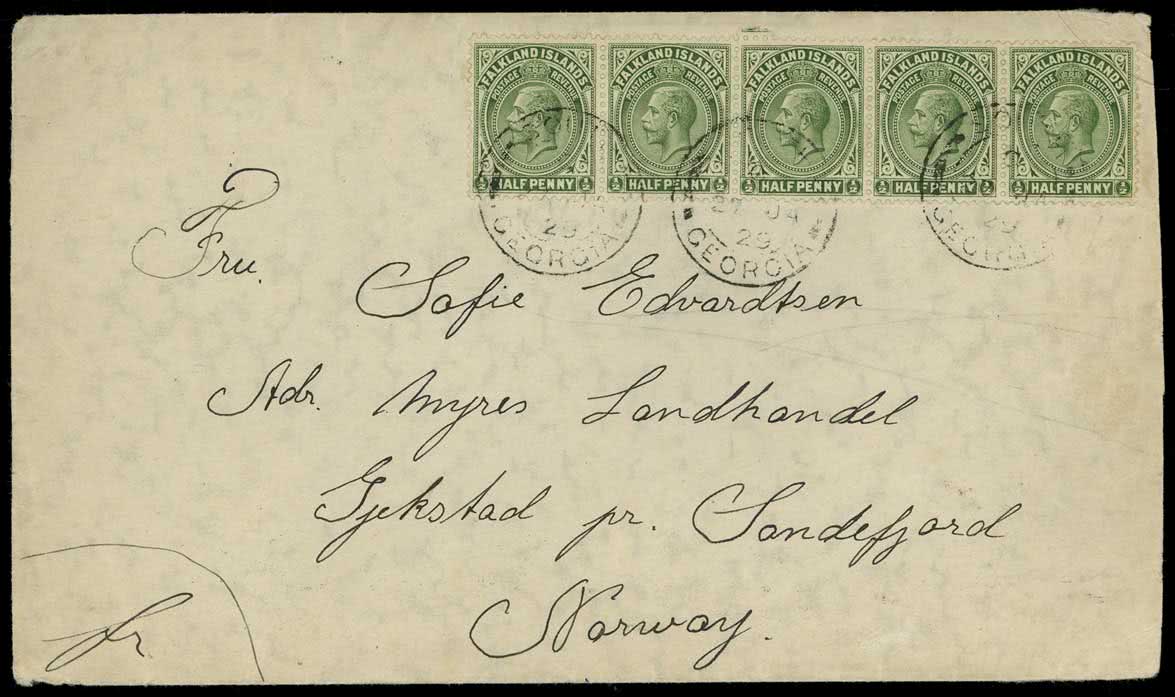 FALKLAND ISLANDS FALKLAND ISLANDS FALKLAND ISLANDS FALKLAND ISLANDS FALKLAND ISLANDS
POSTAGE REVENUE POSTAGE REVENUE POSTAGE REVENUE POSTAGE REVENUE POSTAGE REVENUE
½ HALF PENNY ½ ½ HALF PENNY ½ ½ HALF PENNY ½ ½ HALF PENNY ½ ½ HALF PENNY ½
29 GEORGIA
27 JA 29 GEORGIA
29 GEORGIA
Fru.
Sofie Edvardtsen
Adr. Myres Landhandel
Gjekstad pr. Sandefjord
Norway.
fr.